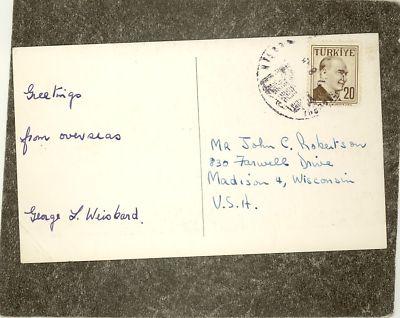 TÜRKİYE
20
Greetings
from overseas
George L. Weisbard.
Mr John C. Robertson
830 Farwell Drive
Madison 4, Wisconsin
U.S.A.